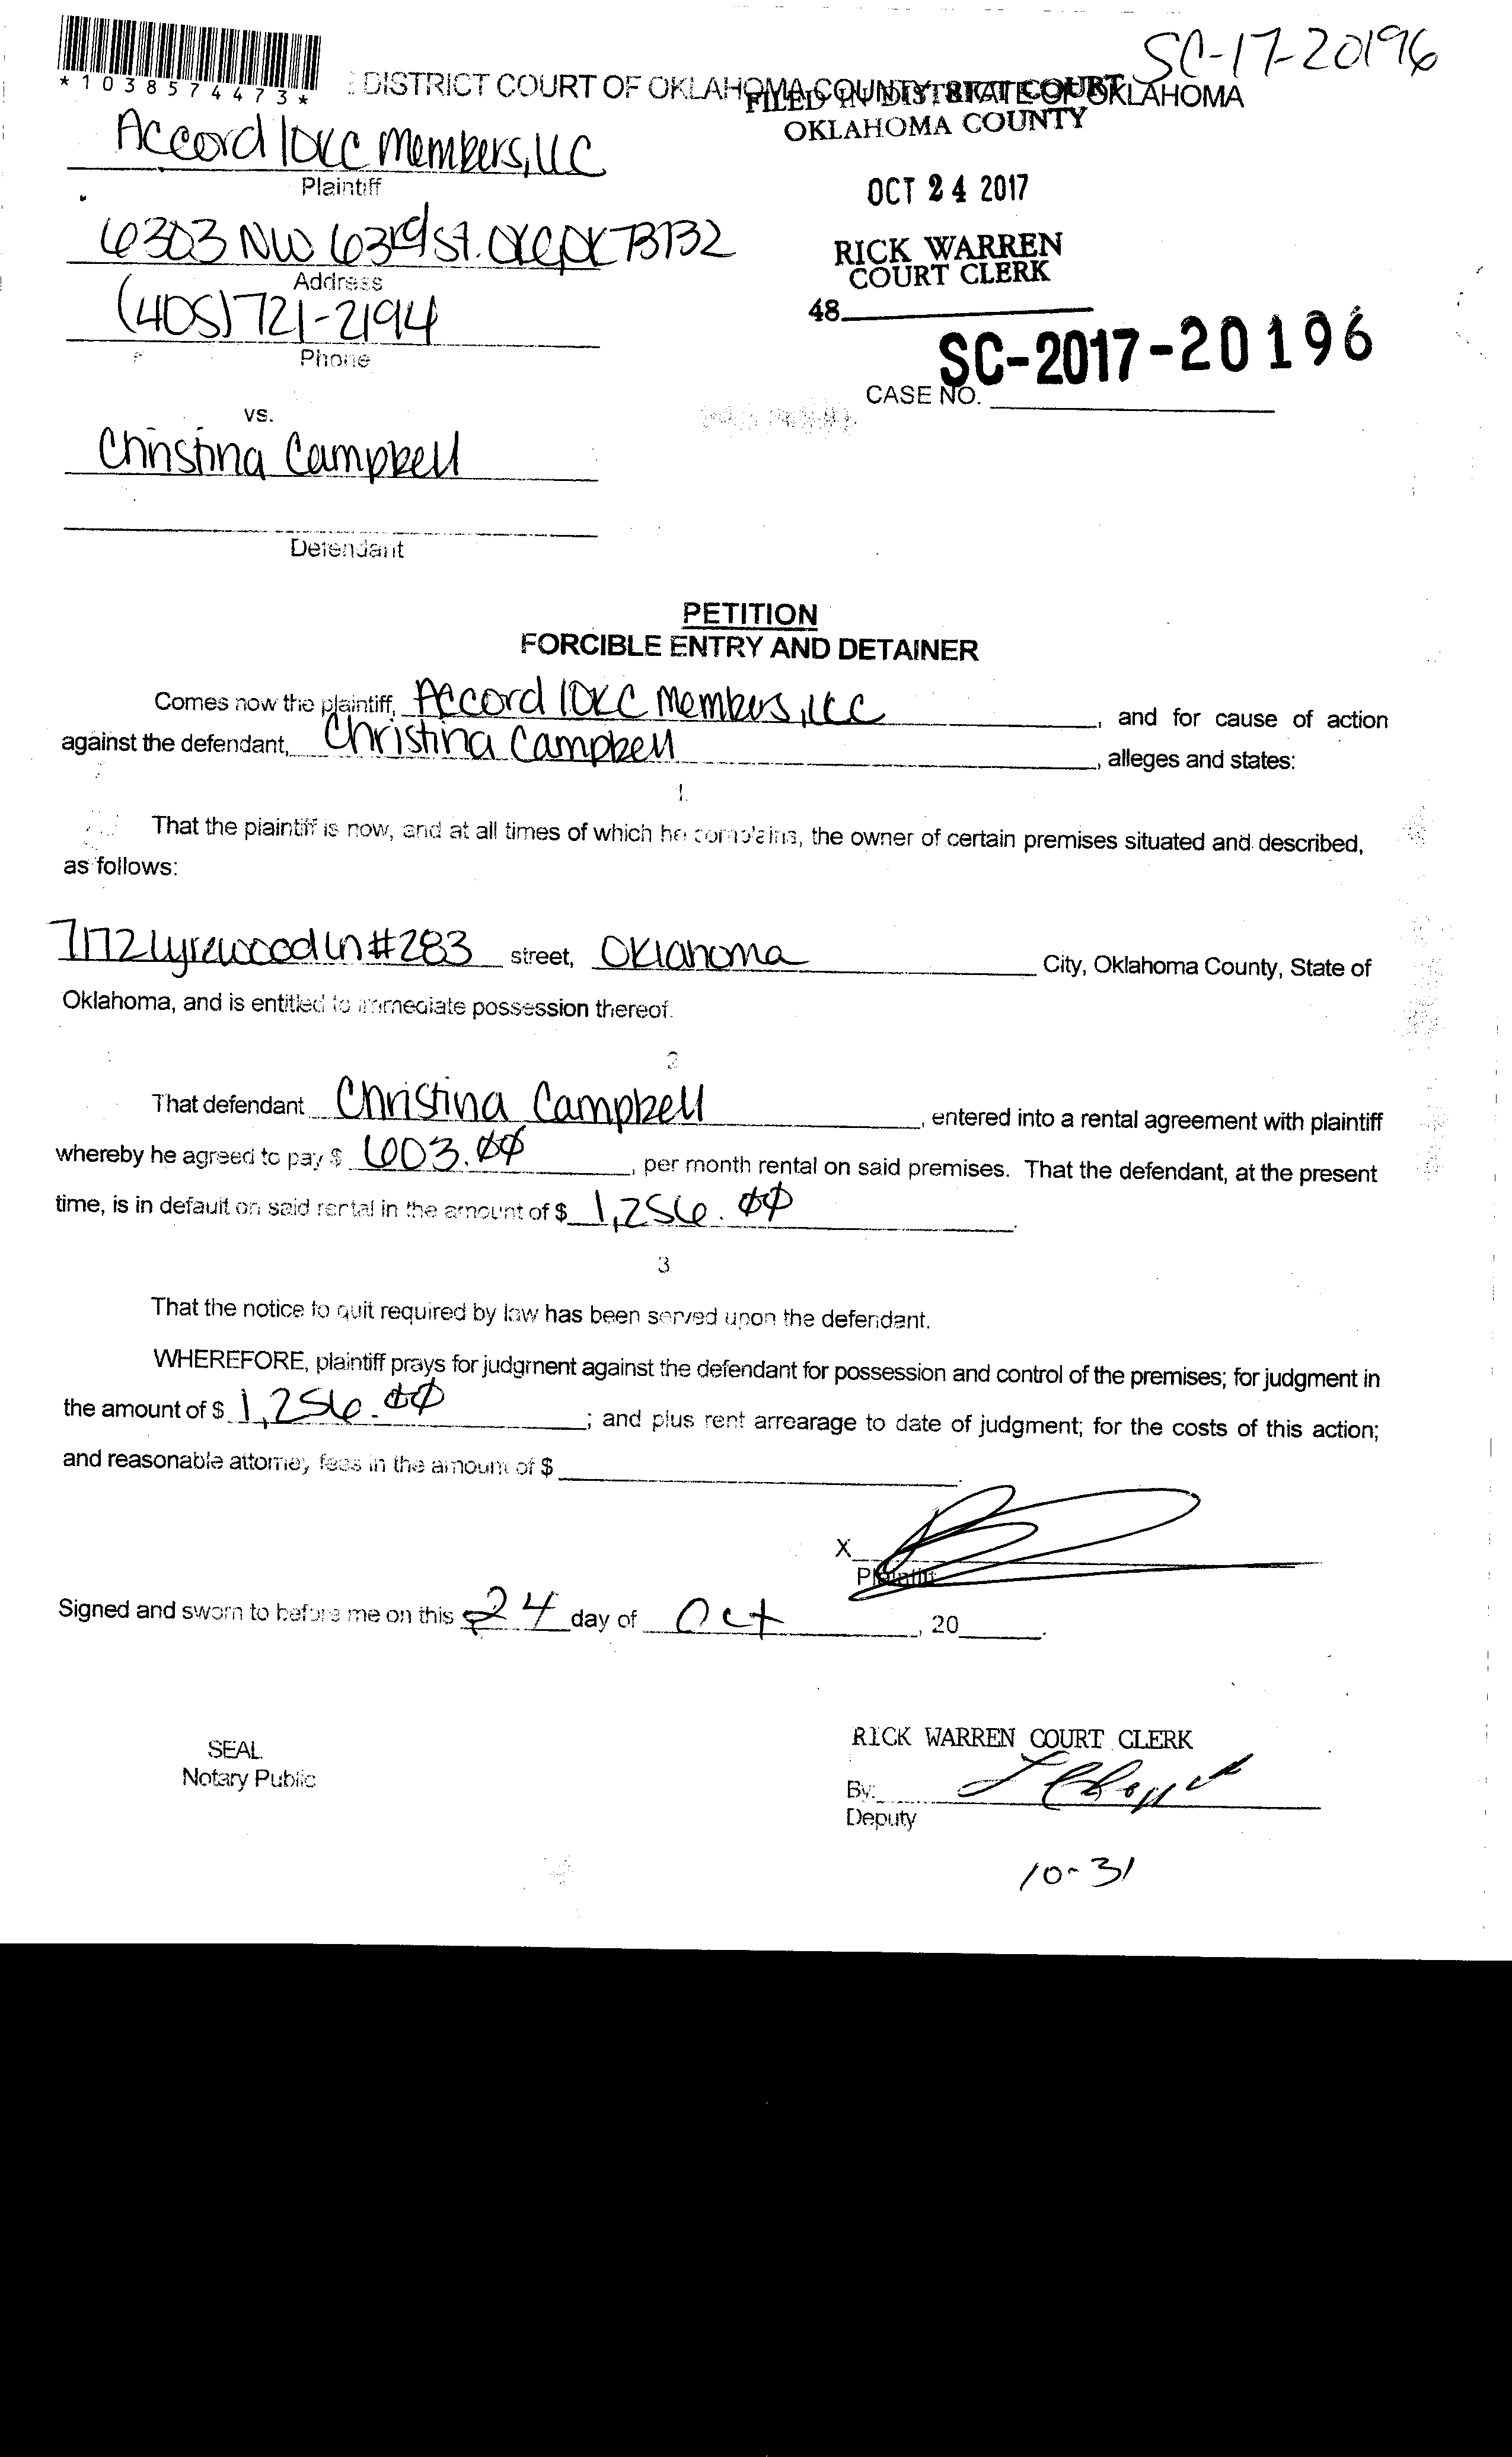 SC-17-20196
*1038574473*
DISTRICT COURT OF OKLAHOMA COUNTY, STATE OF OKLAHOMA
FILED IN DISTRICT COURT
OKLAHOMA COUNTY
Accord 10KC Members, LLC
Plaintiff
OCT 24 2017
6303 NW 63rd St. OKC OK 73132
Address
RICK WARREN
COURT CLERK
(405) 721-2194
Phone
48
SC-2017-20196
CASE NO.
vs.
Christina Campbell
Defendant
PETITION
FORCIBLE ENTRY AND DETAINER
Comes now the plaintiff, Accord 10KC Members, LLC, and for cause of action
against the defendant, Christina Campbell, alleges and states:
1.
That the plaintiff is now, and at all times of which he complains, the owner of certain premises situated and described,
as follows:
7172 Lyrewood Ln #283 street, Oklahoma City, Oklahoma County, State of
Oklahoma, and is entitled to immediate possession thereof.
2
That defendant Christina Campbell, entered into a rental agreement with plaintiff
whereby he agreed to pay $ 603.00, per month rental on said premises. That the defendant, at the present
time, is in default on said rental in the amount of $ 1,256.00.
3
That the notice to quit required by law has been served upon the defendant.
WHEREFORE, plaintiff prays for judgment against the defendant for possession and control of the premises; for judgment in
the amount of $ 1,256.00; and plus rent arrearage to date of judgment; for the costs of this action;
and reasonable attorney fees in the amount of $
X
Plaintiff
Signed and sworn to before me on this 24 day of Oct, 20
SEAL
Notary Public
RICK WARREN COURT CLERK
By:
Deputy
10-31